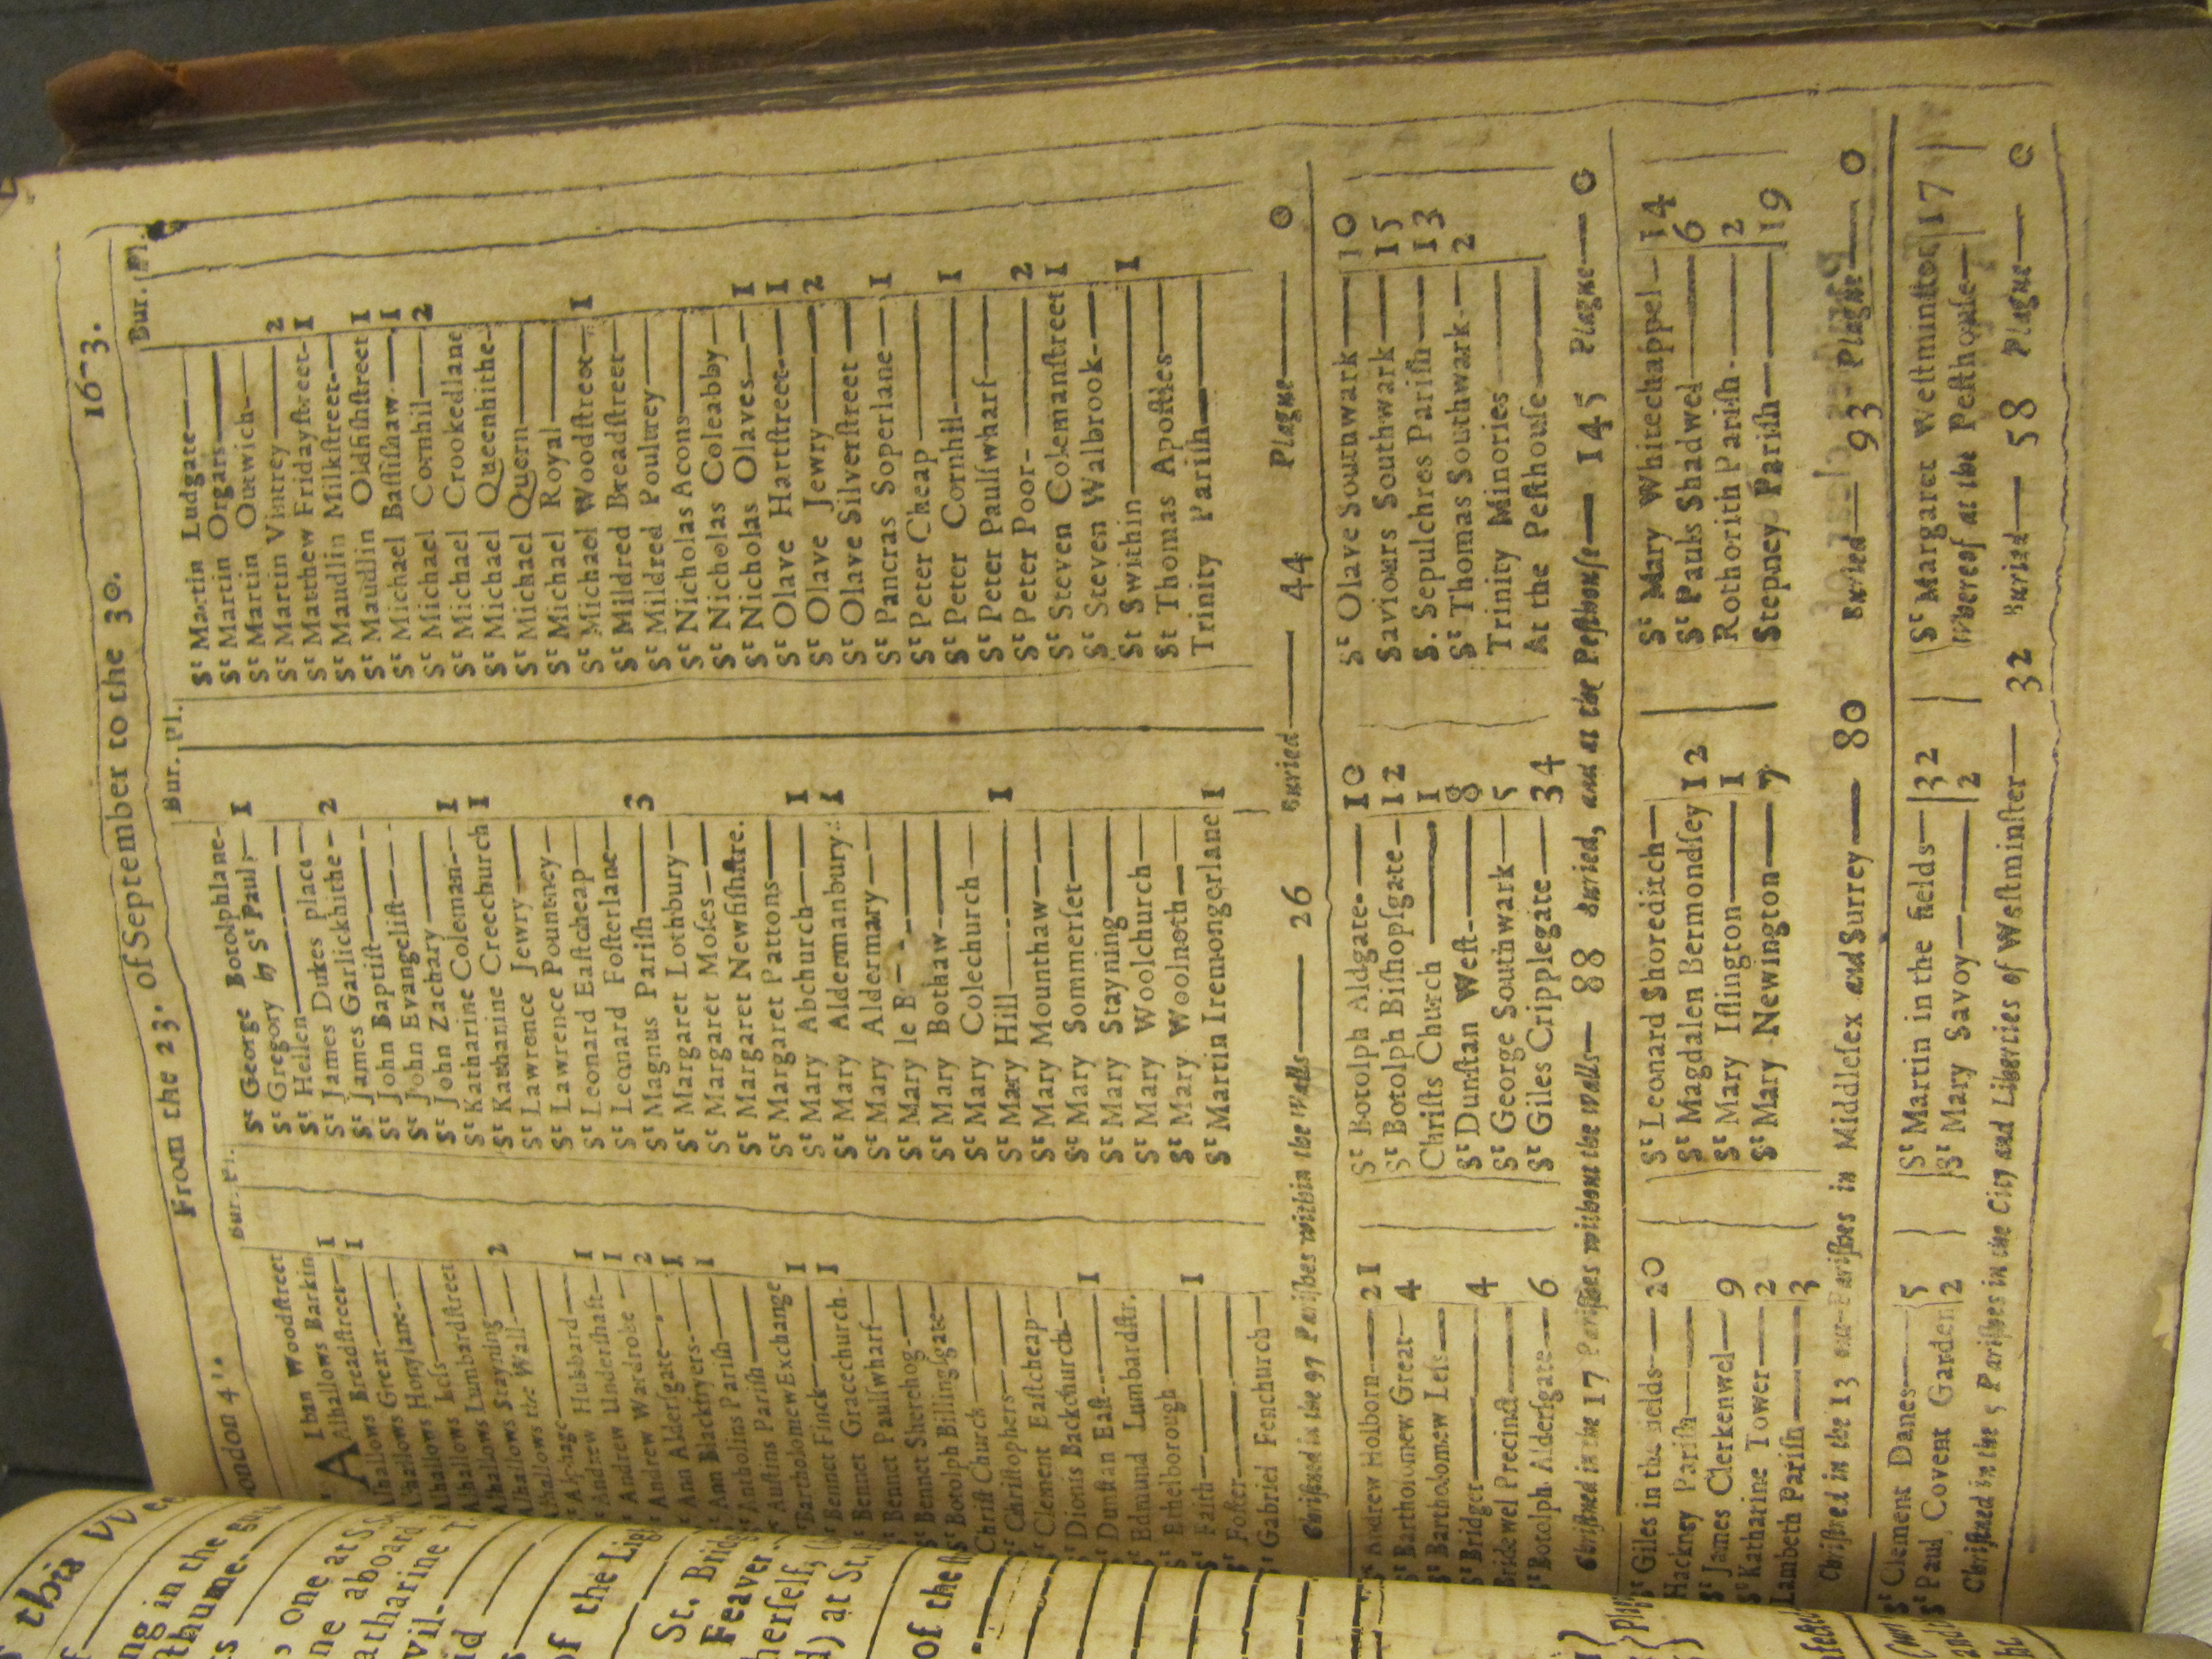 London 4
From the 23. of September to the 30.
1673.
Bur. Pl.
Alban Woodstreet
Alhallows Barkin 1
Alhallows Breadstreet— 1
Alhallows Great—
Alhallows Honylane—
Alhallows Less—
Alhallows Lumbardstreet
Alhallows Stayning— 2
Alhallows the Wall—
St Alphage—
St Andrew Hubbard— 1
St Andrew Undershaft— 1
St Andrew Wardrobe— 2
St Ann Aldersgate— 1
St Ann Blackfryers— 1
St Antholins Parish—
St Austins Parish—
St Bartholomew Exchange 1
St Bennet Finck— 1
St Bennet Gracechurch
St Bennet Paulswharf—
St Bennet Sherehog—
St Botolph Billingsgate—
Christ Church—
St Christophers—
St Clement Eastcheap—
St Dionis Backchurch— 1
St Dunstan East—
St Edmund Lumbardstr.
St Ethelborough— 1
St Faith—
St Foster—
St Gabriel Fenchurch—
Bur. Pl.
St George Botolphlane—
St Gregory by St Pauls— 1
St Hellen—
St James Dukes place—
St James Garlickhithe— 2
St John Baptist—
St John Evangelist—
St John Zachary—
St Katharine Coleman— 1
St Katharine Creechurch 1
St Lawrence Jewry—
St Lawrence Pountney—
St Leonard Eastcheap—
St Leonard Fosterlane—
St Magnus Parish— 3
St Margaret Lothbury—
St Margaret Moses—
St Margaret Newfishstre.
St Margaret Pattons—
St Mary Abchurch— 1
St Mary Aldermanbury 1
St Mary Aldermary—
St Mary le B
St Mary Bothaw—
St Mary Colechurch—
St Mary Hill— 1
St Mary Mounthaw—
St Mary Sommerset—
St Mary Stayning—
St Mary Woolchurch—
St Mary Woolnoth—
St Martin Iremongerlane 1
Bur. Pl.
St Martin Ludgate—
St Martin Orgars—
St Martin Outwich—
St Martin Vintrey— 2
St Matthew Fridaystreet— 1
St Maudlin Milkstreet—
St Maudlin Oldfishstreet 1
St Michael Bassishaw— 1
St Michael Cornhil— 2
St Michael Crookedlane
St Michael Queenhithe—
St Michael Quern—
St Michael Royal—
St Michael Woodstreet— 1
St Mildred Breadstreet—
St Mildred Poultrey—
St Nicholas Acons—
St Nicholas Coleabby—
St Nicholas Olaves— 1
St Olave Hartstreet— 1
St Olave Jewry— 2
St Olave Silverstreet—
St Pancras Soperlane— 1
St Peter Cheap—
St Peter Cornhil— 1
St Peter Paulswharf—
St Peter Poor— 2
St Steven Colemanstreet 1
St Steven Walbrook—
St Swithin— 1
St Thomas Apostles—
Trinity Parish—
Christned in the 97 Parishes within the Walls— 26 Buried— 44 Plague— 0
St Andrew Holborn— 21
St Bartholomew Great— 4
St Bartholomew Less—
St Bridget— 4
Bridewel Precinct—
St Botolph Aldersgate— 6
St Botolph Aldgate— 10
St Botolph Bishopsgate— 12
Christs Church— 1
St Dunstan West— 8
St George Southwark— 5
St Giles Cripplegate— 34
St Olave Southwark— 10
Saviours Southwark— 15
S. Sepulchres Parish— 13
St Thomas Southwark— 2
Trinity Minories—
At the Pesthouse—
Christned in the 17 Parishes without the Walls— 88 Buried, and at the Pesthouse— 145 Plague— 0
St Giles in the fields— 20
Hackney Parish—
St James Clerkenwel— 9
St Katharine Tower— 2
Lambeth Parish— 3
St Leonard Shoreditch—
St Magdalen Bermondsey 12
St Mary Islington— 1
St Mary Newington— 7
St Mary Whitechappel— 14
St Pauls Shadwel— 6
Rothorith Parish— 2
Stepney Parish— 19
Christned in the 13 out-Parishes in Middlesex and Surrey— 80 Buried— 93 Plague— 0
St Clement Danes— 5
St Paul Covent Garden 2
St Martin in the fields— 32
St Mary Savoy— 2
St Margaret Westminster 17
Whereof at the Pesthouse—
Christned in the 5 Parishes in the City and Liberties of Westminster— 32 Buried— 58 Plague— 0